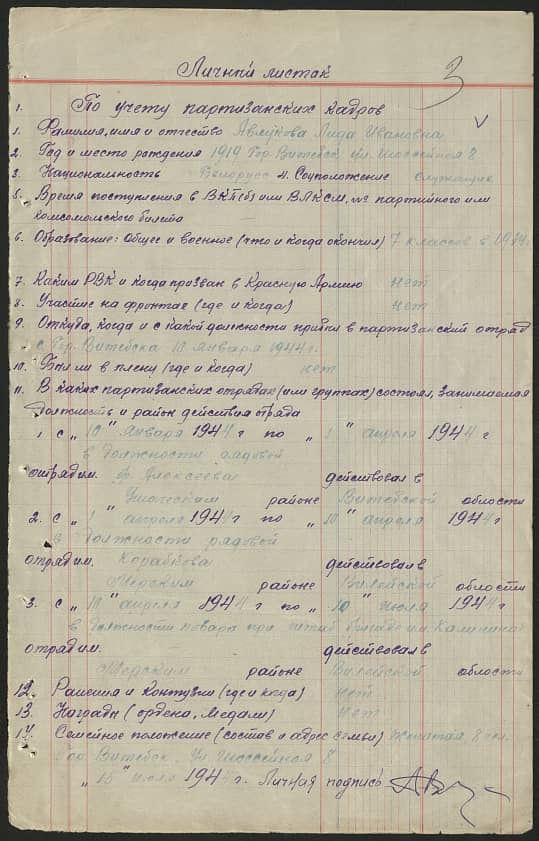 3
Личный листок
1. По учету партизанских кадров
1. Фамилия, имя и отчество Авлукова Лида Ивановна
2. Год и место рождения 1919 Гор. Витебск ул. Шоссейная 8
3. Национальность Белорусс 4. Соцположение служащая
5. Время поступления в ВКП(б) или ВЛКСМ, № партийного или
комсомольского билета –
6. Образование: Общее и военное (что и когда окончил) 7 классов в
7. Каким РВК и когда призван в Красную Армию нет
8. Участие на фронтах (где и когда) нет
9. Откуда, когда и с какой должности прибыл в партизанский отряд
с Гор. Витебска 10 января 1944 г.
10. Были в плену (где и когда) нет
11. В каких партизанских отрядах (или группах) состоял, занимаемая
должность и район действия отряда
1 с „ 10 " января 1944 г по „ 1 " апреля 1944 г
в должности рядовой
отряд им. бр. Алексеева действовал в
районе Витебской области
2. с „ 1 " апреля 1944 г по „ 10 " апреля 1944 г
в должности рядовой
отряд им. действовал в
районе Вилейской области
3. с „ 10 " апреля 1944 г по „ 10 " июля 1944 г
в должности повара при штабе бригады им Калинина
отряд им. действовал в
районе Вилейской области
12. Ранения и контузии (где и когда) нет
13. Награды (ордена, медали) нет
14. Семейное положение (состав и адрес семьи) 8 чел.
Гор. Витебск. Ул Шоссейная 8
„ 15 " июля 1944 г. Личная подпись